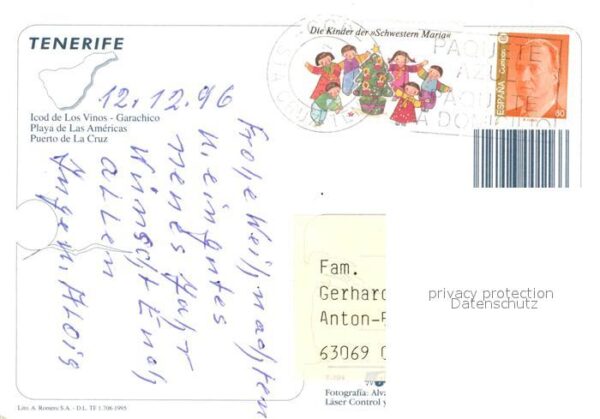 TENERIFE
Icod de Los Vinos - Garachico
Playa de Las Américas
Puerto de La Cruz
12.12.96
Frohe Weihnachten
u. ein gutes
neues Jahr
Wünscht Euch
allen
Die Kinder der »Schwestern Maria«
PAQUETE
AZUL
PAQUETE
A DOMICILIO
ESPAÑA Correos
60
Fam.
Gerhard
Anton-
63069
privacy protection
Datenschutz
Fotografía: Alva
Láser Control y
Lito. A. Romero S.A. - D.L. TF 1.706-1995